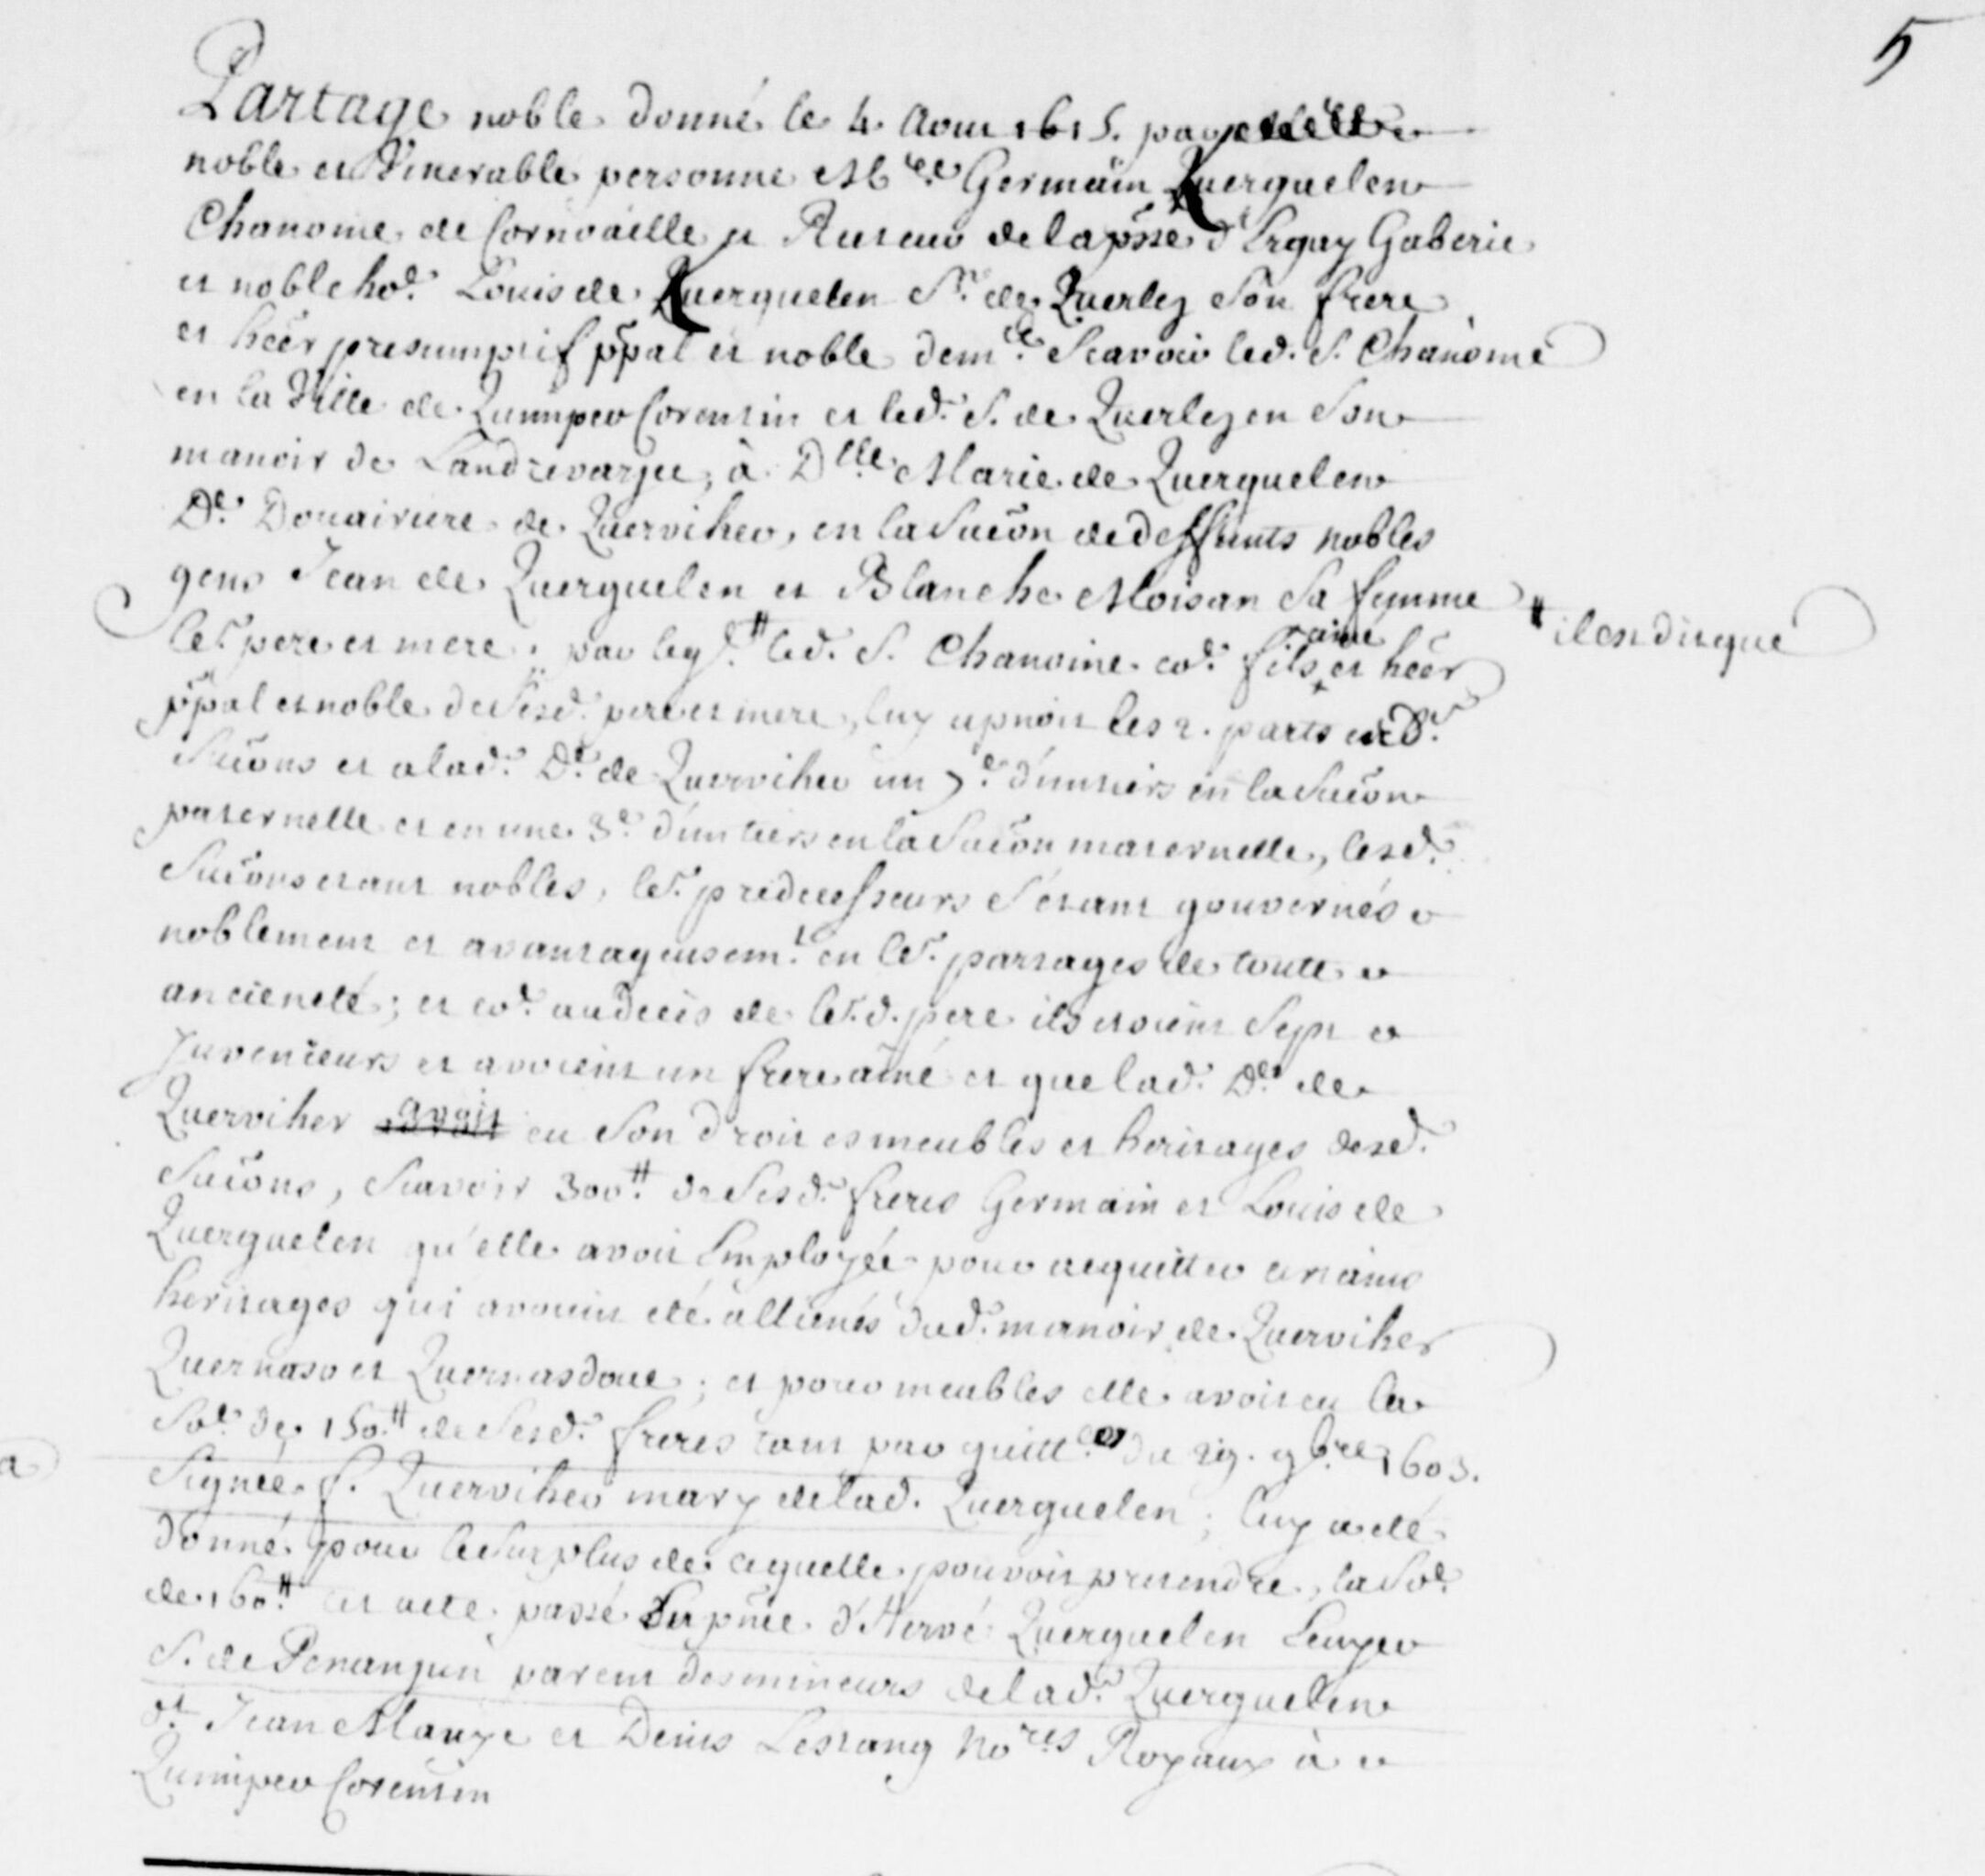 5
Partage noble donné le 4 Aout 1615. par
noble et Venerable personne M.re Germain Querguelen
Chanoine de Cornoaille et Recteur de la pṝsse d'Ergay Gaberic
et noble ho.e Louis de Querguelen S.r de Querlez son frere
et heër presumptif pp̄al et noble dem.te Scavoir led. S. Chanoine
en la Ville de Quimper Corentin et led. S. de Querlez en son
manoir de Landrevarzec, à D.lle Marie de Querguelen
D.e Douairiere de Querviher, en la Sucōn de deffunts nobles
gens Jean de Querguelen et Blanche Moisan sa femme
le.r pere et mere. par leq.l # led. S. Chanoine co.e fils ainé et heër
# il est dit que
pp̄al et noble de sesd. pere et mere, luy apñoit les 2. parts esd.
Sucōns et a lad. D.e de Querviher un 7.e d'un tiers en la Sucōn
paternelle et en une 3.e d'un tiers en la Sucōn maternelle, lesd.
Sucōns etant nobles, le.r predecesseurs s'etant gouvernés
noblement et avantageusem.t en le.r partages de toute
ancieneté; et co.e au decès de le.rd. pere ils etoient Sept
Juveneurs et avoient un frere ainé et que lad. D.e de
Querviher avoit eu son droit es meubles et heritages desd.
Sucōns, Scavoir 300.# de sesd. freres Germain et Louis de
Querguelen qu'elle avoit Employée pour acquitter certains
heritages qui avoient eté alliénés dud. manoir de Querviher
et ; et pour meubles elle avoit eu la
So.e de 150.# de sesd. freres tant par quitt.ces du 29. 9bre 1603.
a
Signée f. Querviher mary de lad. Querguelen; luy a eté
donné pour le surplus de ce quelle pouvoit pretendre, la So.e
de 160.# cet acte passé En pñce d'Hervé Querguelen
S. de Penanjun parent des mineurs de lad. Querguelen
et Jean Mauze et Denis Lestang No.res Royaux à
Quimper Corentin